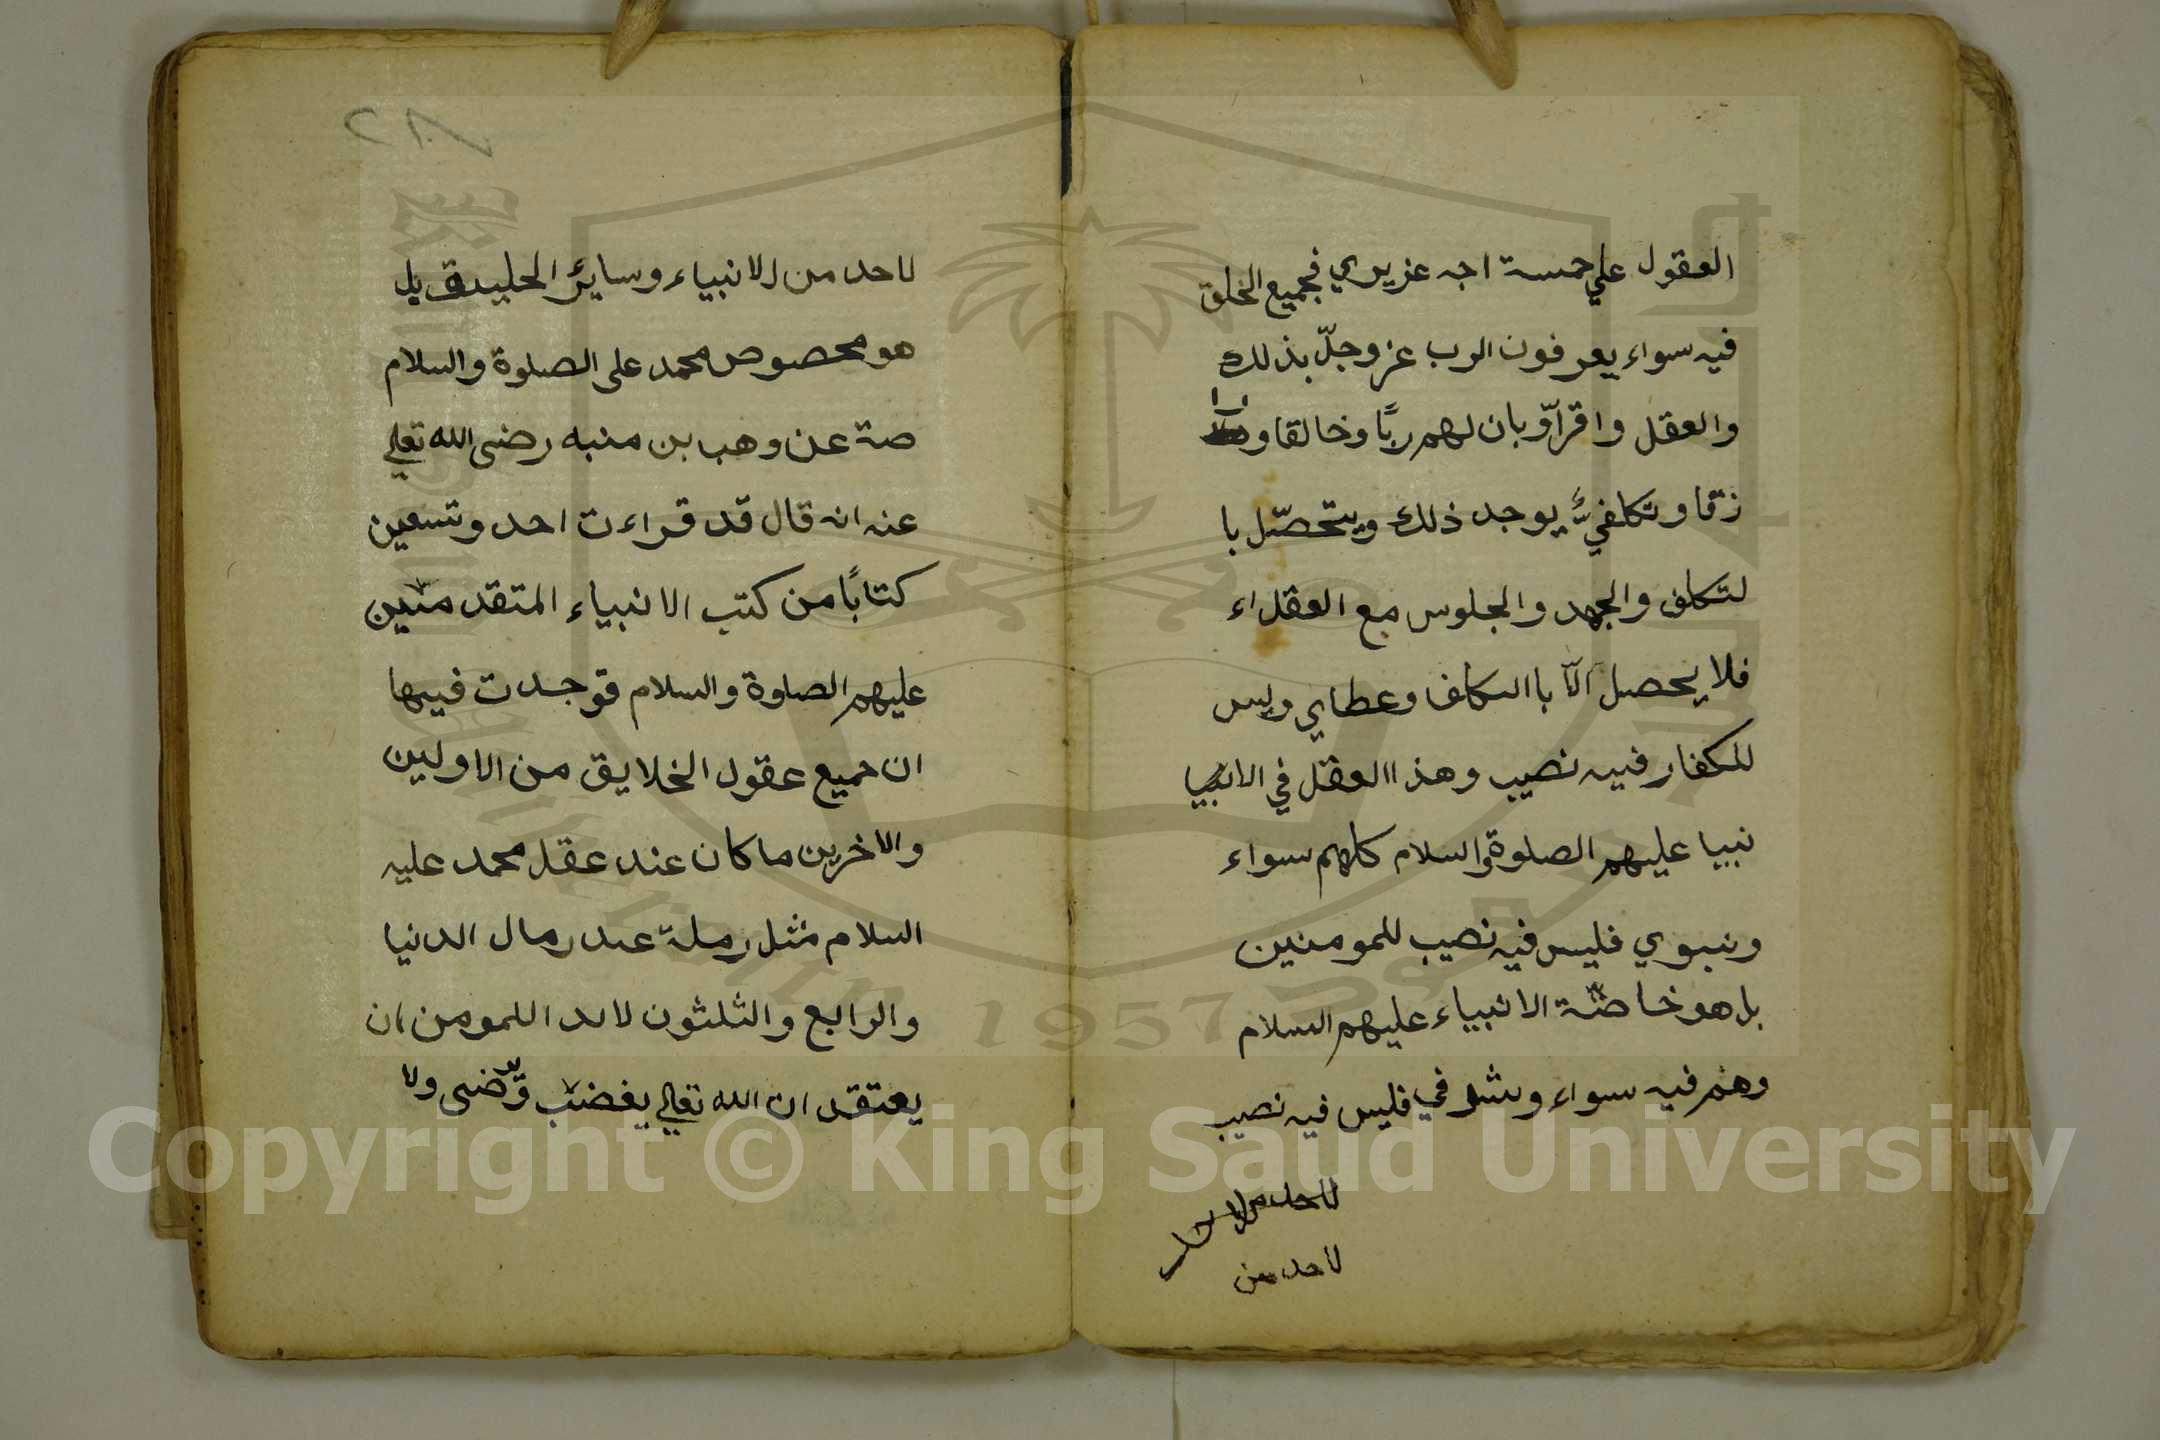 العقول علي خمسة اجه عزيري فجميع الخلق
فيه سواء يعرفون الرب عز وجلّ بذلك
والعقل واقرّاوّ بان لهم ربًّا وخالقا و را
زقا وتكلفيٌّ يوجد ذلك ويتحصّل با
لتكلف والجهد والجلوس مع العقلاء
فلا يحصل الّا باالتكلف وعطاي وليس
للكفار فيه نصيب وهذا العقل في الانبيا
نبيا عليهم الصلوة والسلام كلهم سواء
ونبوي فليس فيه نصيب للمومنين
بل هو خاصّة الانبياء عليهم السلام
وهم فيه سواء وشرفي فليس فيه نصيب
لاحد من
لاحد من
٢٨
لاحد من الانبياء وسائر الخليقة بل
هو مخصوص محمد على الصلوة والسلام
صة عن وهب بن منبه رضى الله تعالي
عنه انه قال قد قراءت احد وتسعين
كتابًا من كتب الانبياء المتقدمين
عليهم الصلوة والسلام فوجدت فيها
ان جميع عقول الخلايق من الاولين
والاخرين ما كان عند عقل محمد عليه
السلام مثل رملة عند رمال الدنيا
والرابع والثلثون لابد اللمومن ان
يعتقد ان الله تعالي يغضب وّيرضى ولا
Copyright © King Saud University
1957